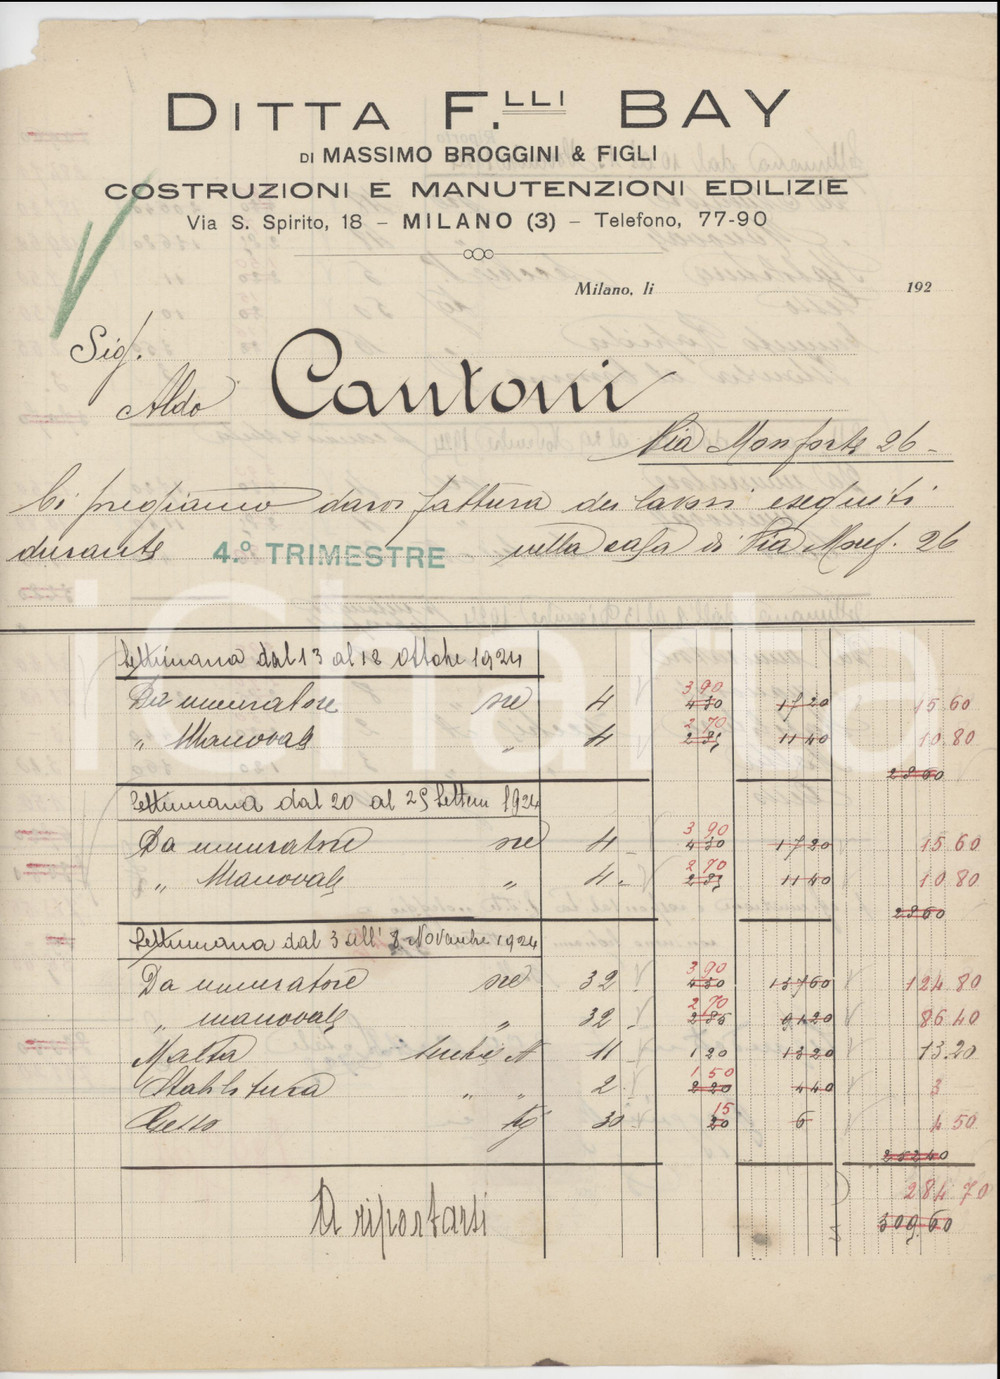 DITTA F.LLI BAY
DI MASSIMO BROGGINI & FIGLI
COSTRUZIONI E MANUTENZIONI EDILIZIE
Via S. Spirito, 18 – MILANO (3) – Telefono, 77-90
Milano, li 192
Sig.
Aldo Cantoni
Via Monforte 26 -
Ci pregiamo darvi fattura dei lavori eseguiti
durante 4.º TRIMESTRE nella casa di Via Monf. 26
iCharta
Settimana dal 13 al 18 ottobre 1924
Da muratore ore 4 3 90 4 30 17 20 15 60
" Manovale " 4 2 70 2 85 11 40 10.80
28 60
Settimana dal 20 al 25 Settem 1924
Da muratore ore 4 3 90 4 30 17 20 15 60
" Manovale " 4 2 70 2 85 11 40 10.80
28 60
Settimana dal 3 all' 8 Novembre 1924
Da muratore ore 32 3 90 4 30 137 60 124 80
" manovale " 32 2 70 2 85 91 20 86 40
Malta secchie N 11 1 20 13 20 13.20
Stabilitura " " 2 1 50 2 20 4 40 3
Gesso Kg 30 15 20 6 4 50
252 40
284 70
A riportarsi 309.60